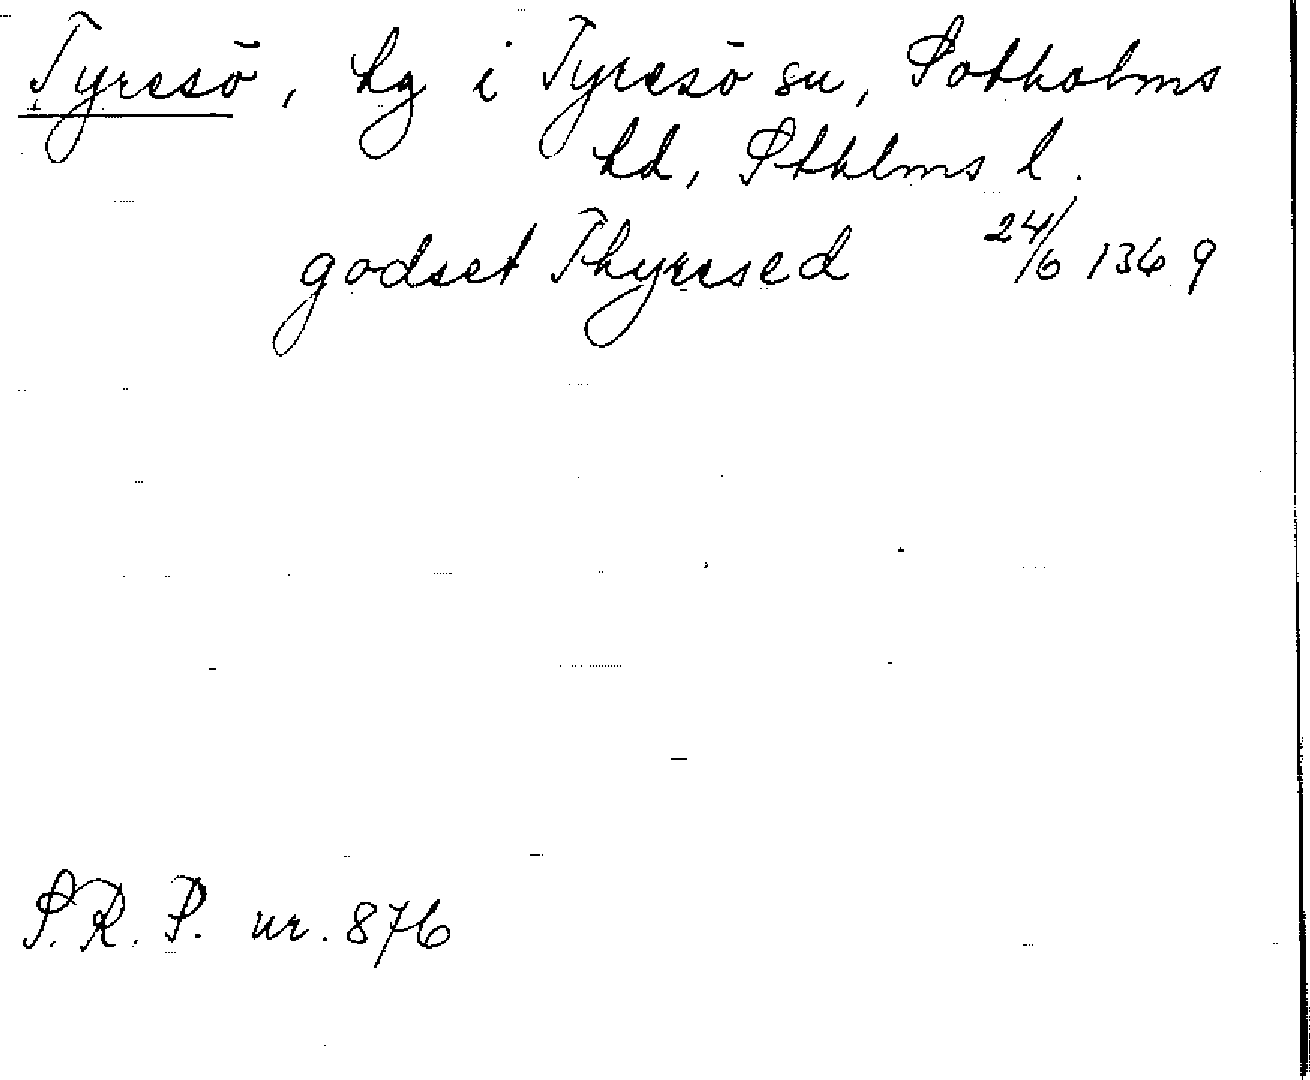 Tyresö, hg i Tyresö sn, Sotholms
hd, Sthlms l.
godset Thyressed 24/6 1369
S.R.P. nr. 876